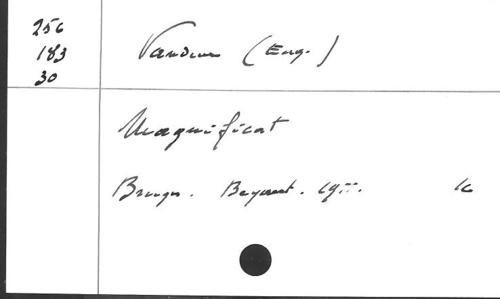 256
183
30
Vandeur (Eug.)
Magnificat
Bruges. Beyaert. 19--.